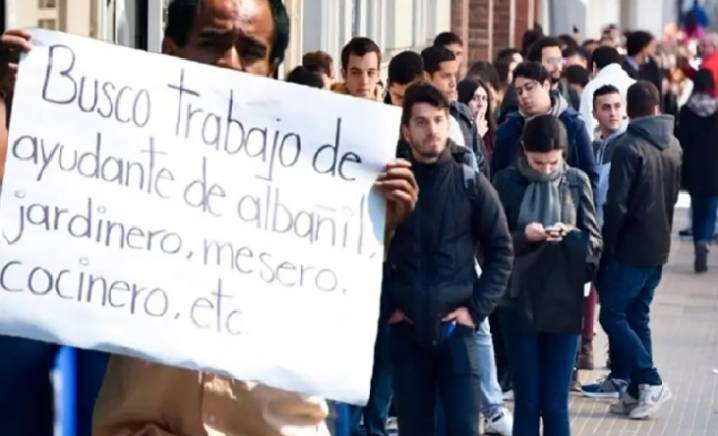 Busco trabajo de
ayudante de albañil,
jardinero, mesero,
cocinero, etc